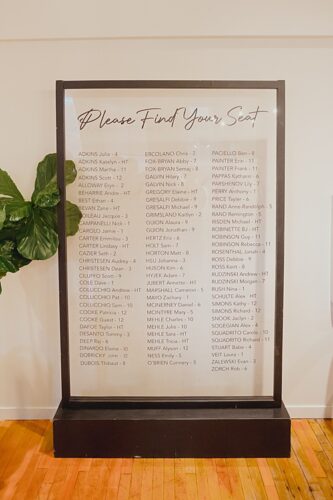 Please Find Your Seat
ADKINS Julia - 4
ADKINS Katelyn - HT
ADKINS Martha - 11
ADKINS Scott - 12
ALLOWAY Eryn - 2
BEHARRIE Andre - HT
BEST Ethan - 4
BEVAN Zane - HT
BOILEAU Jacquie - 3
CAMPANELLI Nick - 1
CAROLO Jamie - 1
CARTER Emmylou - 3
CARTER Lindsay - HT
CAZIER Seth - 2
CHRISTESEN Audrey - 4
CHRISTESEN Dean - 3
CILIUFFO Scott - 9
COLE Dave - 1
COLUCCHIO Andrew - HT
COLUCCHIO Pat - 10
COLUCCHIO Sam - 10
COOKE Patricia - 12
COOKE Guest - 12
DAFOE Taylor - HT
DESANTO Tommy - 3
DEEP Raj - 6
DINARDO Elaine - 10
DOBRICKY John - 12
DUBOIS Thibaut - 8
ERCOLANO Chris - 2
FOX-BRYAN Abby - 7
FOX-BRYAN Semaj - 8
GALVIN Hilary - 7
GALVIN Nick - 8
GREGORY Michael - 5
GRESALFI Debbie - 9
GRESALFI Michael - 9
GRIMSLAND Kaitlyn - 2
GUION Alaura - 9
GUION Jonathan - 9
HERTZ Eric - 8
HOLT Sam - 7
HORTON Matt - 8
HSU Johanna - 3
HUSON Kim - 6
HVIER Avalon - 7
JUBERT Annette - HT
MARSHALL Cameron - 5
MAYO Zachary - 1
MCINERNEY Daniel - 6
MCINTYRE Mary - 5
MEHLE Charles - 10
MEHLE Julie - 10
MEHLE Sara - HT
MEHLE Tricia - HT
MUFF Alyson - 12
NESS Emily - 5
O'BRIEN Connery - 5
PACIELLO Ben - 8
PAINTER Erin - 11
PAINTER Frank - 11
PAPPAS Kathryn - 6
PARSHENKOV Lily - 3
PERRY Anthony - 7
PRICE Taylor - 6
RAND Anne-Randolph - 5
RAND Remington - 5
RISDEN Michael - HT
ROBINETTE BJ - HT
ROBINSON Guy - 11
ROBINSON Rebecca - 11
ROSENAL Jonathan - 4
ROSS Debbie - 9
ROSS Keirt - 8
RUDZINSKI Andrew - HT
RUDZINSKI Morgan - 7
RUSH Nina - 1
SCHULTE Alex - HT
SIMONS Kathy - 12
SIMONS Richard - 12
SNOOK Jaclyn - 2
SOGEGIAN Alex - 4
SQUADRITO Carole - 10
SQUADRITO Richard - 11
STUART Baby - 4
VEIT Laura - 1
ZALEWSKI Evan - 3
ZORCH Rob - 6